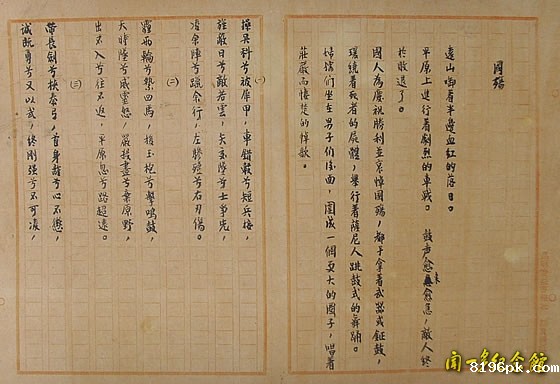 國殤
遠山啣着半邊血紅的落日。
平原上進行着劇烈的車戰。 鼓声愈來愈急，敵人終
於敗退了。
國人為慶祝勝利並哀悼國殤，都手拿着武器或鉦鼓，
環繞着死者的屍體，舉行着薩尼人跳鼓式的舞踊。
姑娘們坐在男子們後面，圍成一個更大的圈子，唱着
莊嚴而悽楚的悼歌。
(一)
操吳科兮被犀甲，車錯轂兮短兵接，
旌蔽日兮敵若雲，矢交墜兮士爭先，
凌余陣兮躐余行，左驂殪兮右刃傷。
(二)
霾兩輪兮縶四馬，援玉枹兮擊鳴鼓，
天時墜兮威靈怒，嚴殺盡兮棄原野，
出不入兮往不返，平原忽兮路超遠。
(三)
帶長劍兮挾秦弓，首身離兮心不懲，
誠既勇兮又以武，終剛強兮不可凌，
闻一多纪念館
8196pk.com